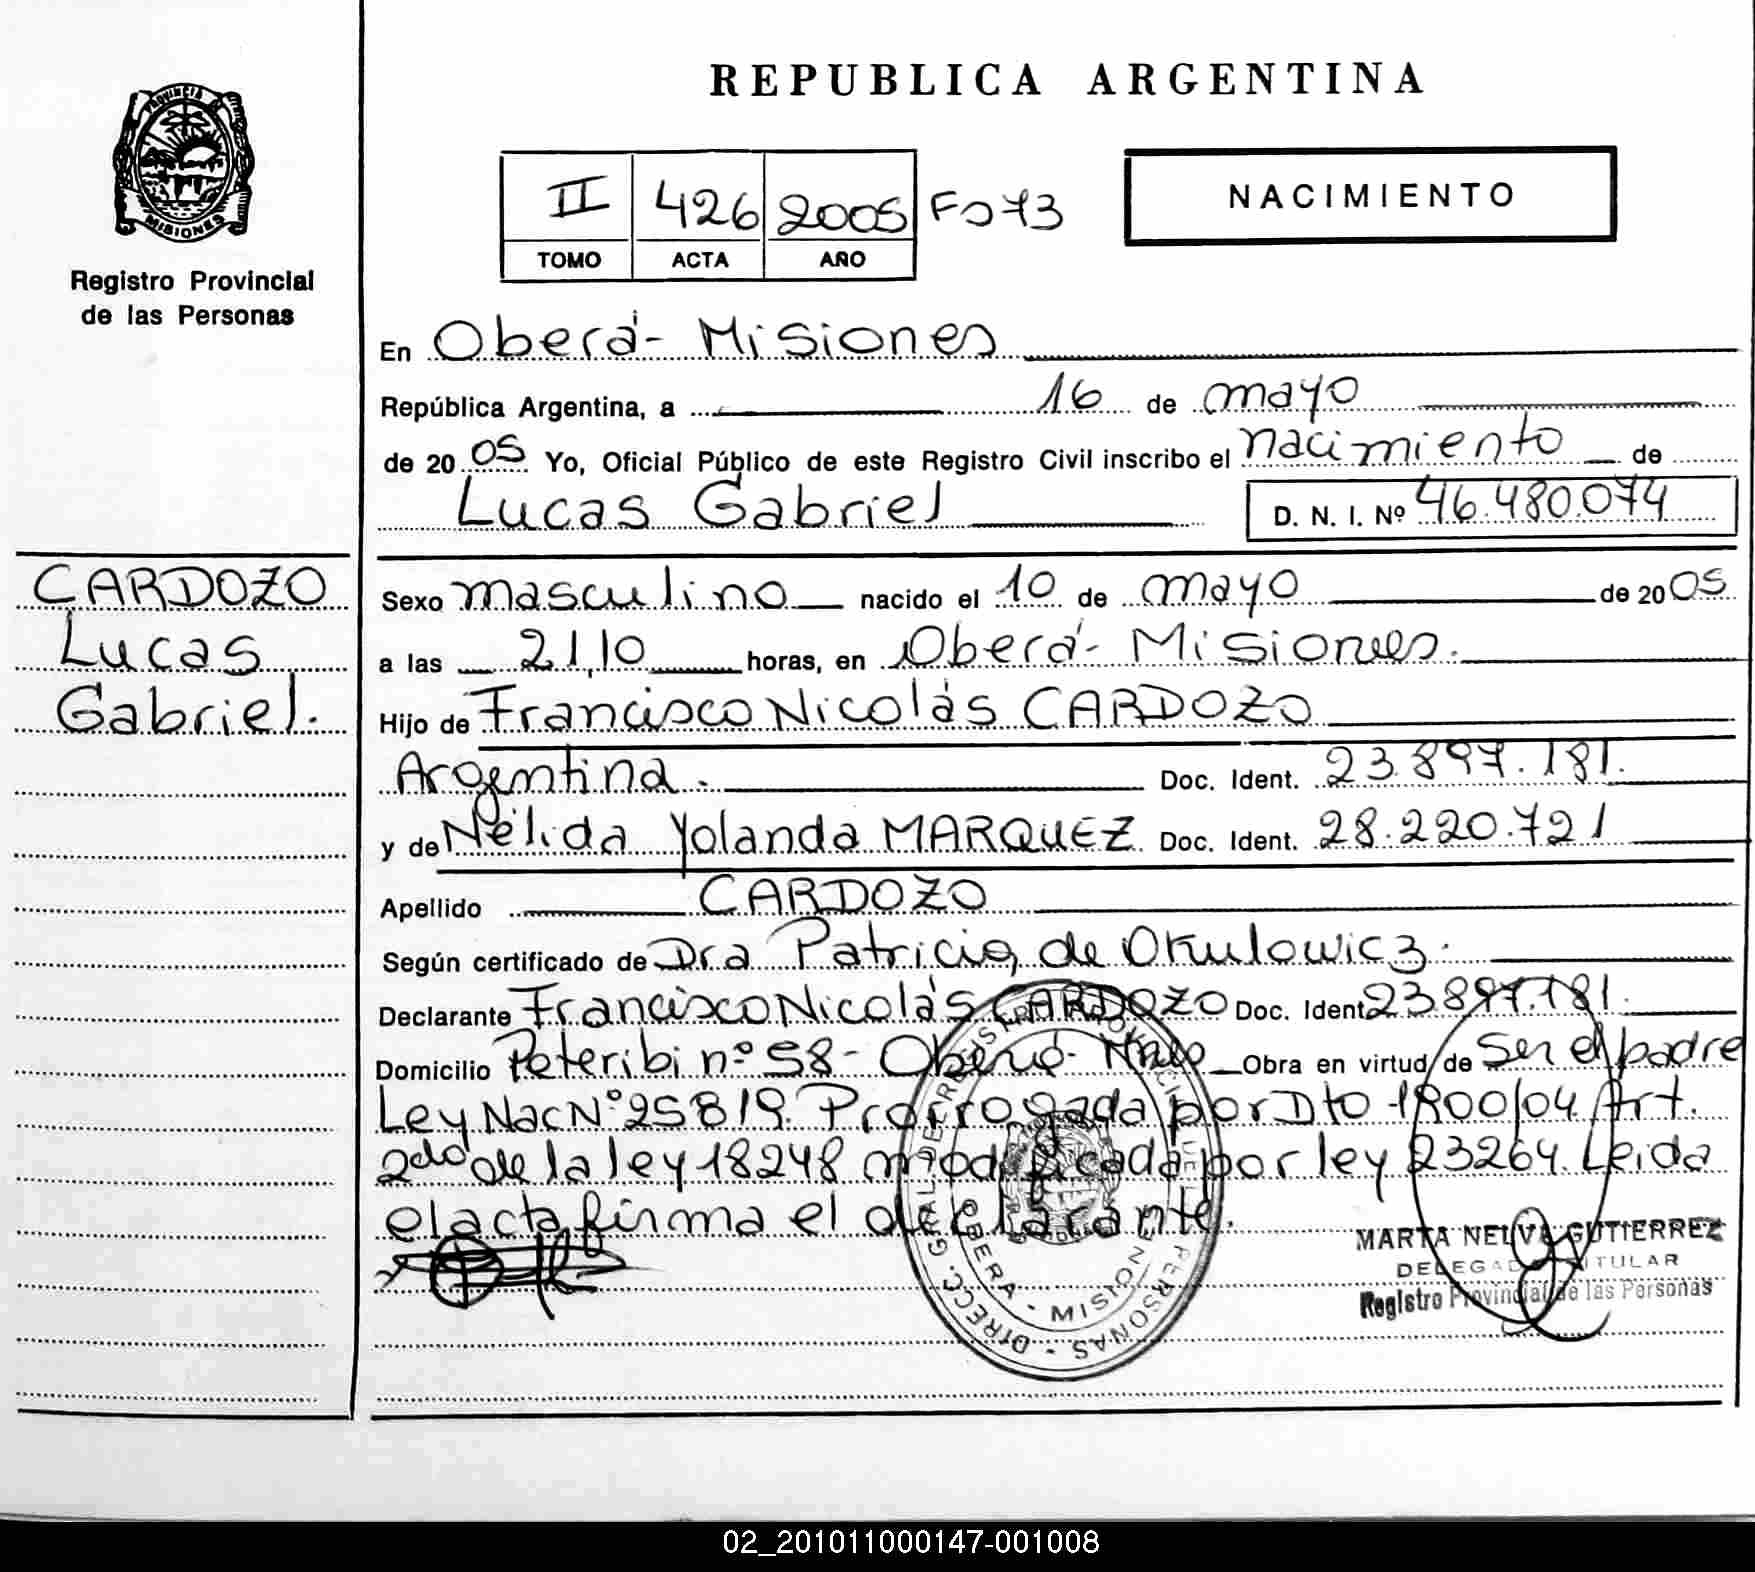 REPUBLICA ARGENTINA
PROVINCIA
MISIONES
Registro Provincial
de las Personas
II 426 2005 Fo 73
TOMO ACTA AÑO
NACIMIENTO
En Oberá- Misiones
República Argentina, a 16 de mayo
de 20 05 Yo, Oficial Público de este Registro Civil inscribo el nacimiento de
Lucas Gabriel D. N. I. Nº 46.480.074
CARDOZO
Lucas
Gabriel.
Sexo masculino nacido el 10 de mayo de 20 05
a las 21,10 horas, en Oberá- Misiones.
Hijo de Francisco Nicolás CARDOZO
Argentina. Doc. Ident. 23.897.181.
y de Nélida Yolanda MARQUEZ Doc. Ident. 28.220.721
Apellido CARDOZO
Según certificado de Dra Patricia de Okulowicz.
Declarante Francisco Nicolás CARDOZO Doc. Ident 23.897.181.
Domicilio Peteribi nº 58- Oberá- Mnes Obra en virtud de Ser el padre
Ley Nac Nº 25819. Prorrogada por Dto 1900/04 Art.
2do de la ley 18248 modificada por ley 23264. Leida
el acta firma el declarante.
DIRECC. GRAL. DE REGISTRO PROVINCIAL DE LAS PERSONAS.
OBERA - MISIONES
MARTA NELVA GUTIERREZ
DELEGADO TITULAR
Registro Provincial de las Personas
02_201011000147-001008